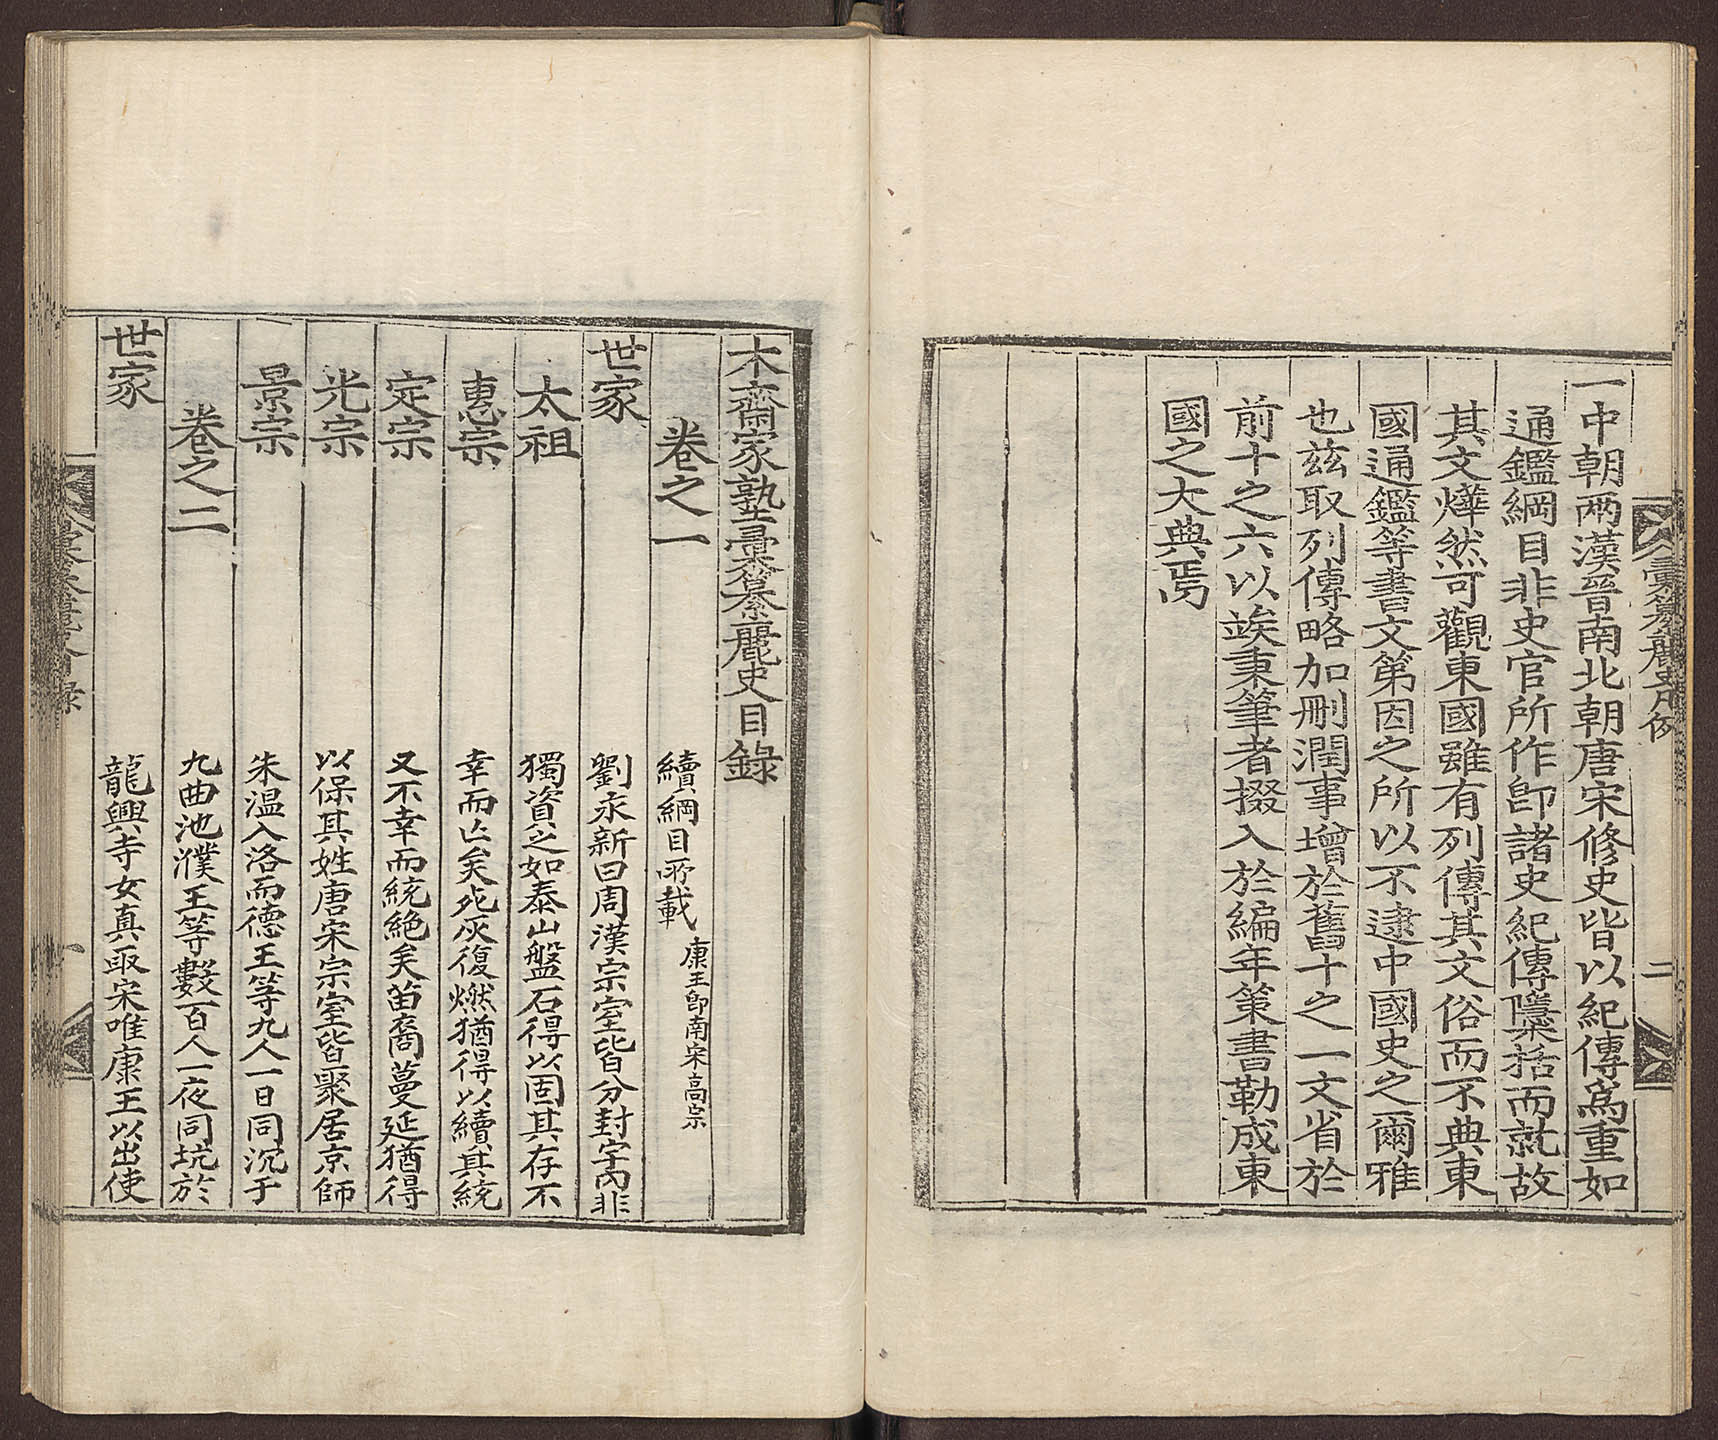 彙纂麗史凡例
二
一中朝兩漢晉南北朝唐宋修史皆以紀傳爲重如
通鑑綱目非史官所作卽諸史紀傳檃括而就故
其文燁然可觀東國雖有列傳其文俗而不典東
國通鑑等書文第因之所以不逮中國史之爾雅
也玆取列傳略加刪潤事增於舊十之一文省於
前十之六以竢秉筆者掇入於編年策書勒成東
國之大典焉
木齋家塾彙纂麗史目錄
卷之一
續綱目所載 康王卽南宋高宗
世家
劉永新曰周漢宗室皆分封宇內非
太祖
獨資之如泰山盤石得以固其存不
惠宗
幸而亡矣死灰復燃猶得以續其統
定宗
又不幸而統絶矣苗裔蔓延猶得
光宗
以保其姓唐宋宗室皆聚居京師
景宗
朱温入洛而德王等九人一日同沉于
卷之二
九曲池濮王等數百人一夜同坑於
世家
龍興寺女真取宋唯康王以出使